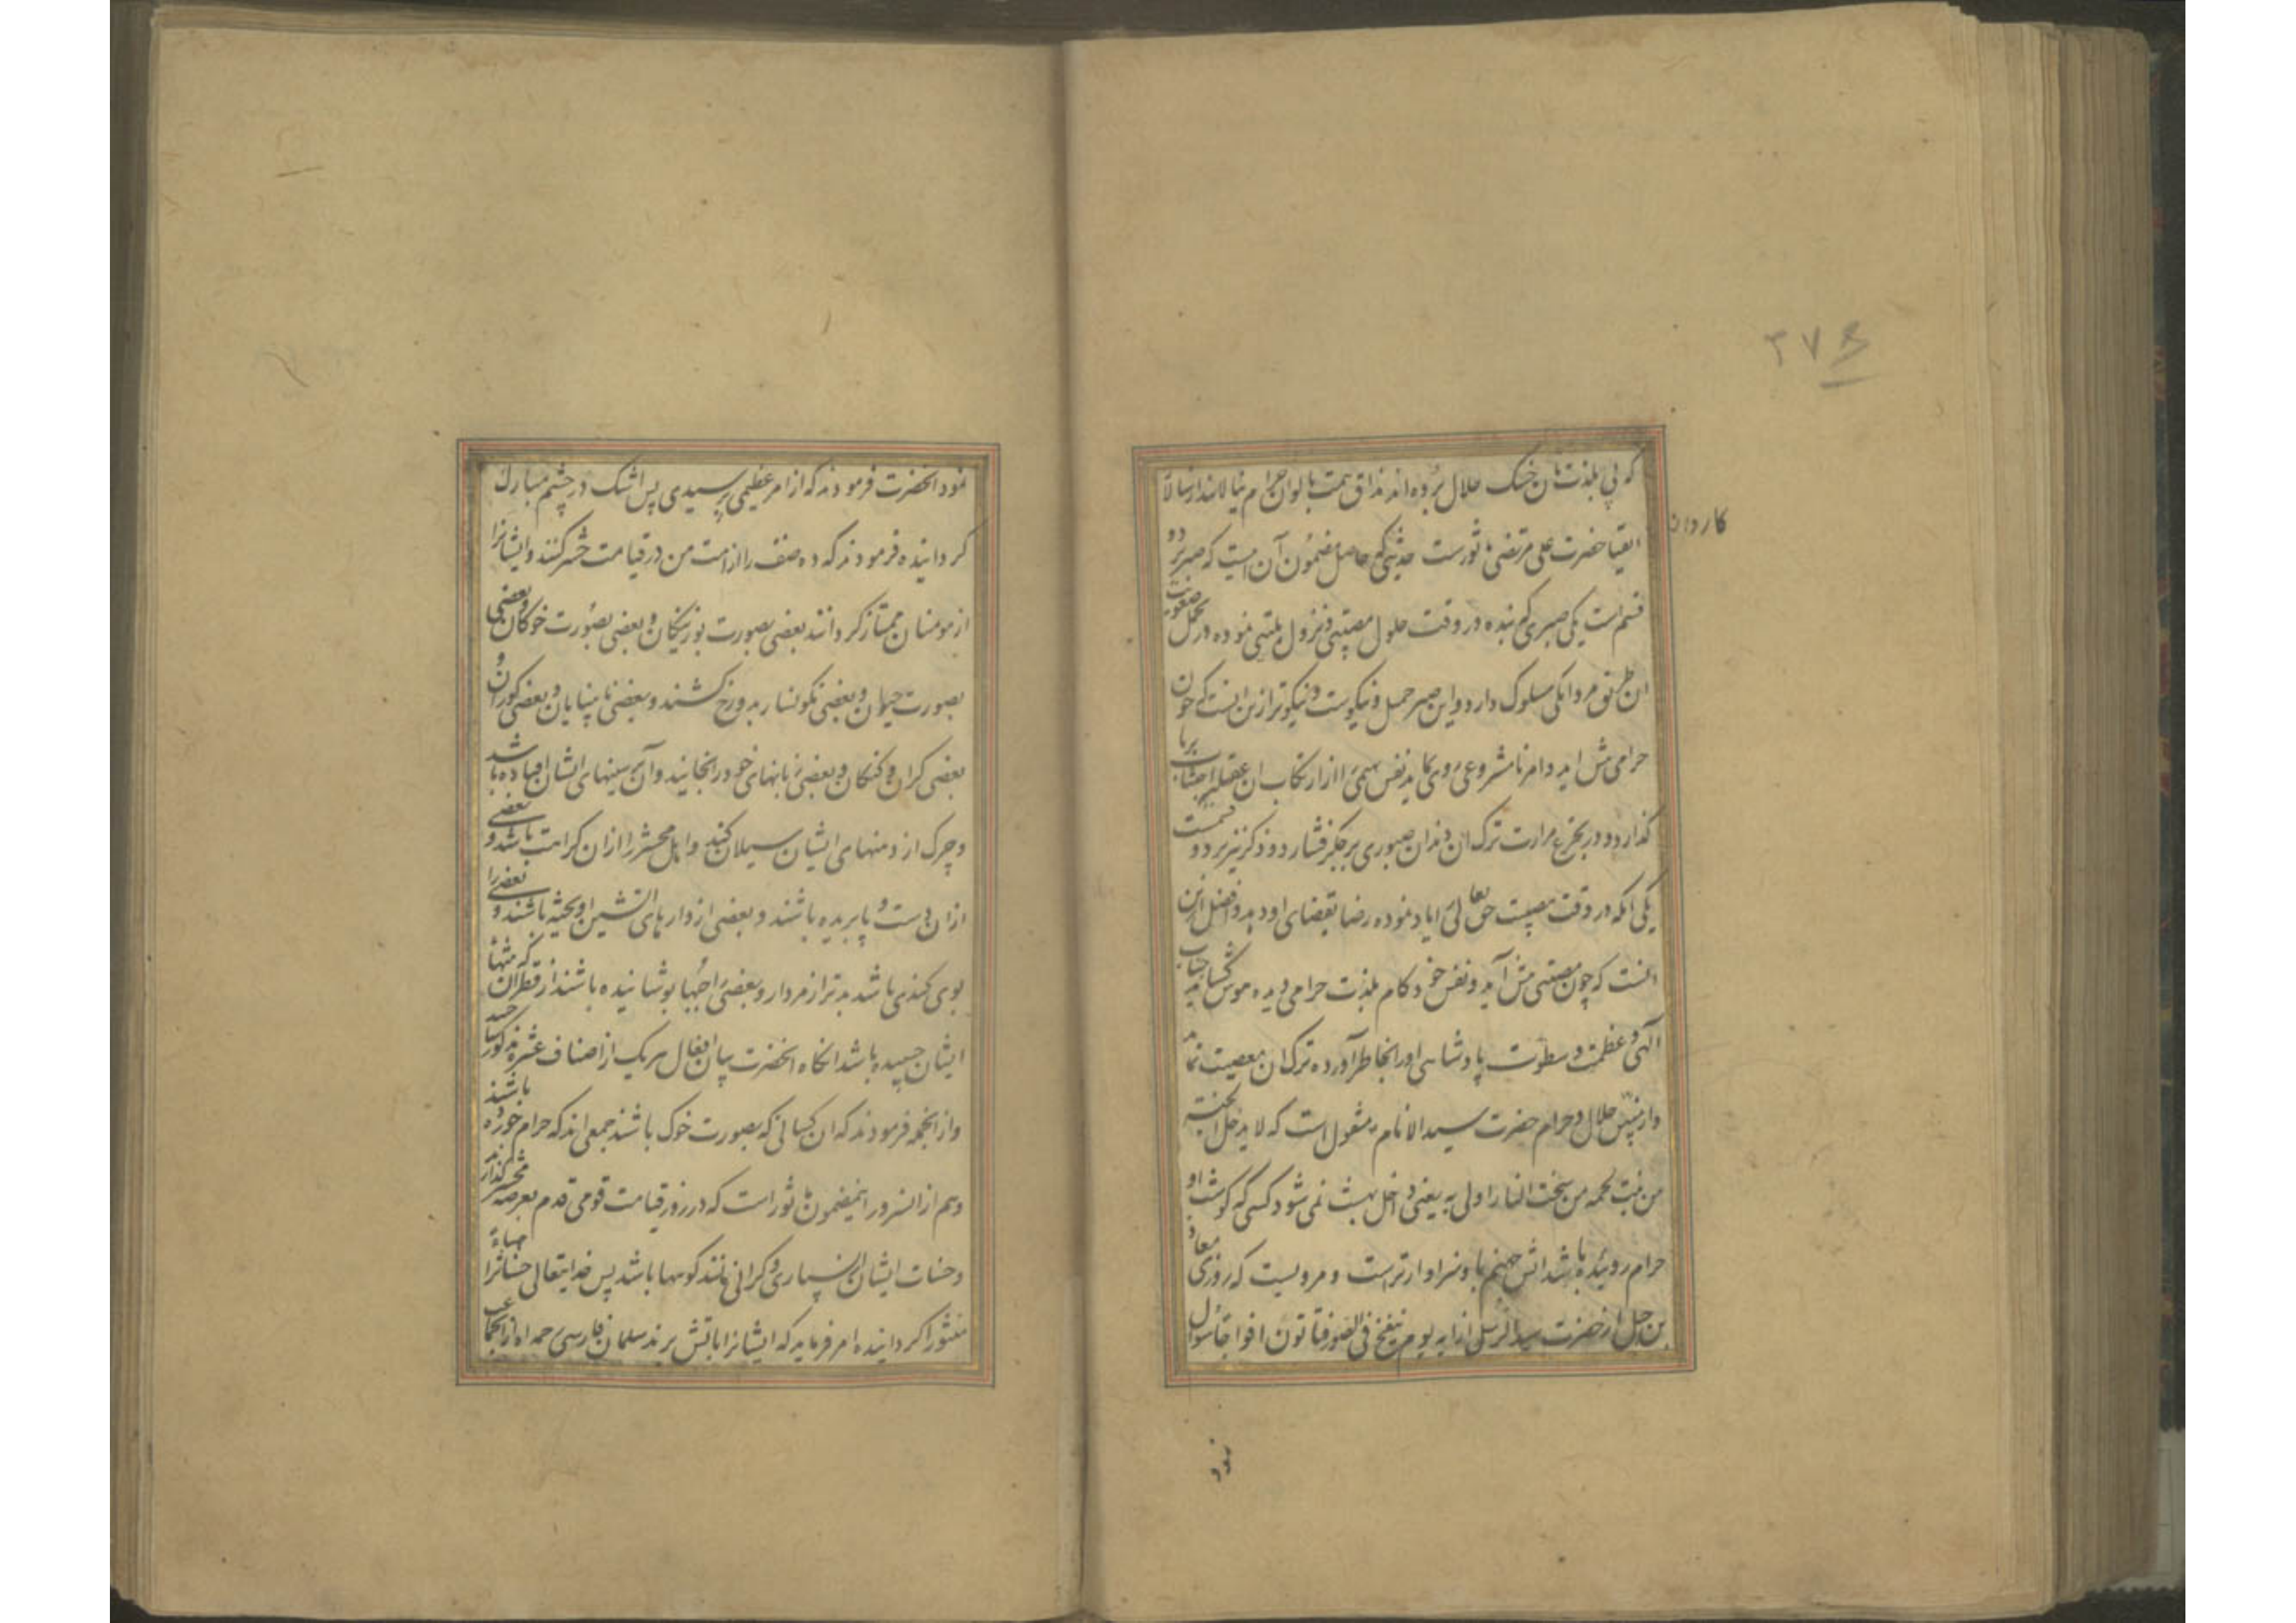 ۲۷۸
که پی بلذت نان خشک حلال برده‌اند مذاق همت بالوان حرام نیالایند از سالار
کاردان
اتقیا حضرت علی مرتضی ماثورست حدیثی که حاصل مضمون آن اینست که صبر بر دو
قسم است یکی صبری که بنده در وقت حلول مصیبتی و نزول بلیتی نموده در تحمل صعوبت
ان طریق مردانکی مسلوک دارد و این صبر جمیل و نیکوست و نیکوتر ازین انست که چون
حرامی پیش اید و امر نامشروعی روی نماید نفس بهیمی را از ارتکاب ان اجتناب
کذارد و در تجرع مرارت ترک ان دندان صبوری بر جکر فشارد و ذکر نیز بر دو قسمست
یکی انکه در وقت مصیبت حق تعالی را یاد نموده رضا بقضای او دهد و افضل ازین
انست که چون معصیتی پیش آید و نفس خود کام بلذت حرامی دیده هوس کشاید جناب
الهی و عظمت و سطوت پادشاهی او را بخاطر آورده ترک ان معصیت نماید
و از مبین حلال و حرام حضرت سید الانام منقول است که لا یدخل الجنة
من نبت لحمه من سحت النار اولی به یعنی داخل بهشت نمی شود کسی که کوشت او از
حرام روئیده باشد اتش جهنم باو سزاوارتر است و مرویست که روزی معاذ
بن جبل از حضرت سید الرسل از ایه یوم ینفخ فی الصور فتاتون افواجا سوال
نمود
نمود انحضرت فرمودند که از امر عظیمی پرسیدی پس اشک در چشم مبارک
کردانیده فرمودند که ده صنف را از امت من در قیامت حشر کنند و ایشانرا
از مومنان ممتاز کردانند بعضی بصورت بوزینکان و بعضی بصورت خوکان و بعضی
بصورت و بعضی نکونسار بدوزخ کشند و بعضی نابینایان و بعضی کوران و
بعضی کران و کنکان و بعضی زبانهای خود را بخایند و آن بر سینهای ایشان افتاده باشد
و چرک از دهنهای ایشان سیلان کند و اهل محشر را از ان کراهت باشد و بعضی
ازان دست و پا بریده باشند و بعضی از دارهای اتشین اویخته باشند و بعضی را
بوی کندی باشد بدتر از مردار و بعضی را جبها پوشانیده باشند از قطران که بتنها
ایشان چسپیده باشد انکاه انحضرت بیان افعال هر یک از اصناف عشره مذکور
و از انجمله فرمودند که ان کسانی که بصورت خوک باشند جمعی اند که حرام خورده باشند
و هم از انسرور اینمضمون ماثور است که در روز قیامت قومی قدم بعرصه محشر کذارند
و حسنات ایشان از بسیاری و کرانی مانند کوهها باشد پس خدایتعالی حسنات را هباء
منثورا کردانیده امر فرماید که ایشانرا باتش برند سلمان فارسی رحمه الله از انجناب